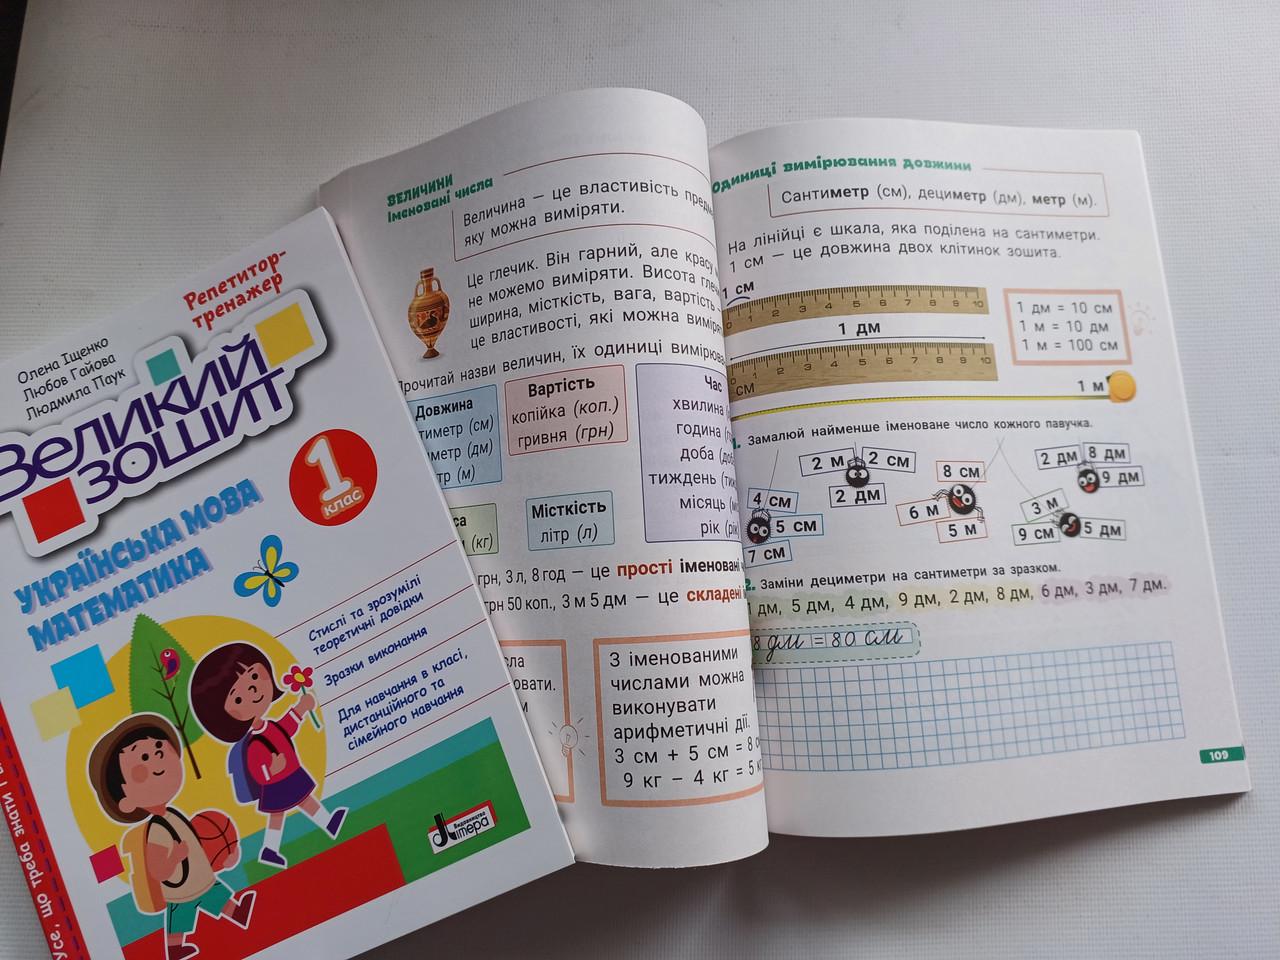 Репетитор-
тренажер
Олена Іщенко
Любов Гайова
Людмила Паук
Великий
зошит
1
клас
УКРАЇНСЬКА МОВА
МАТЕМАТИКА
Стислі та зрозумілі
теоретичні довідки
Зразки виконання
Для навчання в класі,
дистанційного та
сімейного навчання
Видавництво
Літера
що треба знати і
ВЕЛИЧИНИ
Іменовані числа
Величина — це властивість
яку можна виміряти.
Це глечик. Він гарний, але красу
не можемо виміряти. Висота
ширина, місткість, вага, вартість
це властивості, які можна
Прочитай назви величин, їх одиниці
Довжина
(см)
(дм)
(м)
Вартість
копійка (коп.)
гривня (грн)
Час
хвилина
година
доба
тиждень
місяць
рік
(кг)
Місткість
літр (л)
грн, 3 л, 8 год — це прості іменовані
грн 50 коп., 3 м 5 дм — це складені
З іменованими
числами можна
виконувати
арифметичні дії.
3 см + 5 см = 8
9 кг − 4 кг = 5
Одиниці вимірювання довжини
Сантиметр (см), дециметр (дм), метр (м).
На лінійці є шкала, яка поділена на сантиметри.
1 см — це довжина двох клітинок зошита.
1 см
0 1 2 3 4 5 6 7 8 9 10
1 дм
1 2 3 4 5 6 7 8 9 10
см
1 дм = 10 см
1 м = 10 дм
1 м = 100 см
1 м
1. Замалюй найменше іменоване число кожного павучка.
4 см
5 см
7 см
2 м
2 см
2 дм
8 см
6 м
5 м
2 дм
8 дм
9 дм
3 м
9 см
5 дм
2. Заміни дециметри на сантиметри за зразком.
1 дм, 5 дм, 4 дм, 9 дм, 2 дм, 8 дм, 6 дм, 3 дм, 7 дм.
8 дм = 80 см
109